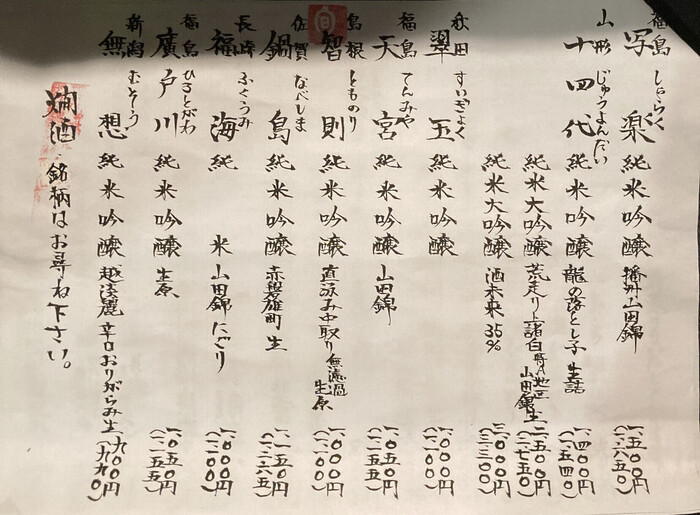 福島 しゃらく
写楽 純米吟醸 播州山田錦 一五〇〇円
(一六五〇)
山形 じゅうよんだい
十四代 純米吟醸 龍の落とし子 生詰 一四〇〇円
(一五四〇)
純米大吟醸 荒走り上諸白 特A地区山田錦 生 二五〇〇円
(二七五〇)
純米大吟醸 酒未来 35% 三〇〇〇円
(三三〇〇)
秋田 すいぎょく
翠玉 純米吟醸 一〇〇〇円
(一一〇〇)
福島 てんみや
天宮 純米吟醸 山田錦 一〇五〇円
(一一五五)
島根 とものり
智則 純米吟醸 直汲み中取り 無濾過生原 一〇〇〇円
(一一〇〇)
佐賀 なべしま
鍋島 純米吟醸 赤磐雄町 生 一一五〇円
(一二六五)
長崎 ふくうみ
福海 純米 山田錦にごり 一〇〇〇円
(一一〇〇)
福島 ひろとがわ
廣戸川 純米吟醸 生原 一〇五〇円
(一一五五)
新潟 むそう
無想 純米吟醸 越淡麗 辛口おりがらみ生 九〇〇円
(九九〇)
燗酒・銘柄はお尋ね下さい。